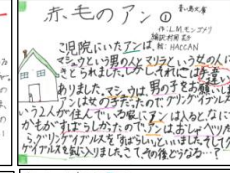 赤毛のアン①
青い鳥文庫
作:L.M.モンゴメリ
編訳 村岡花子
絵:HACCAN
こ児院にいたアンは、
マシュウという男の人とマリラという女の人に
ひきとられました。しかし、それには手違いが
ありました。マシュウは、男の子をお願いしま
アンは女の子だったのです。グリングイブルズと
いう2人が住んでいる家に、アンは入ると、なに
かもがすばらしかったので、アンはおしゃべりだ
グリングイブルズを「すばらしい」といいました。そして
ゲイブルズを気に入りました。さて、その後どうなる…?